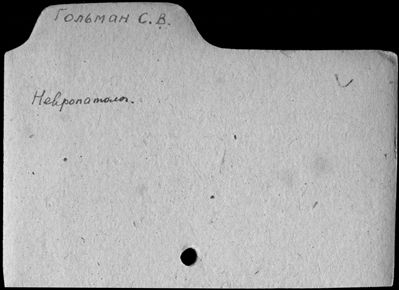 Гольман С.В.
Невропатолог.